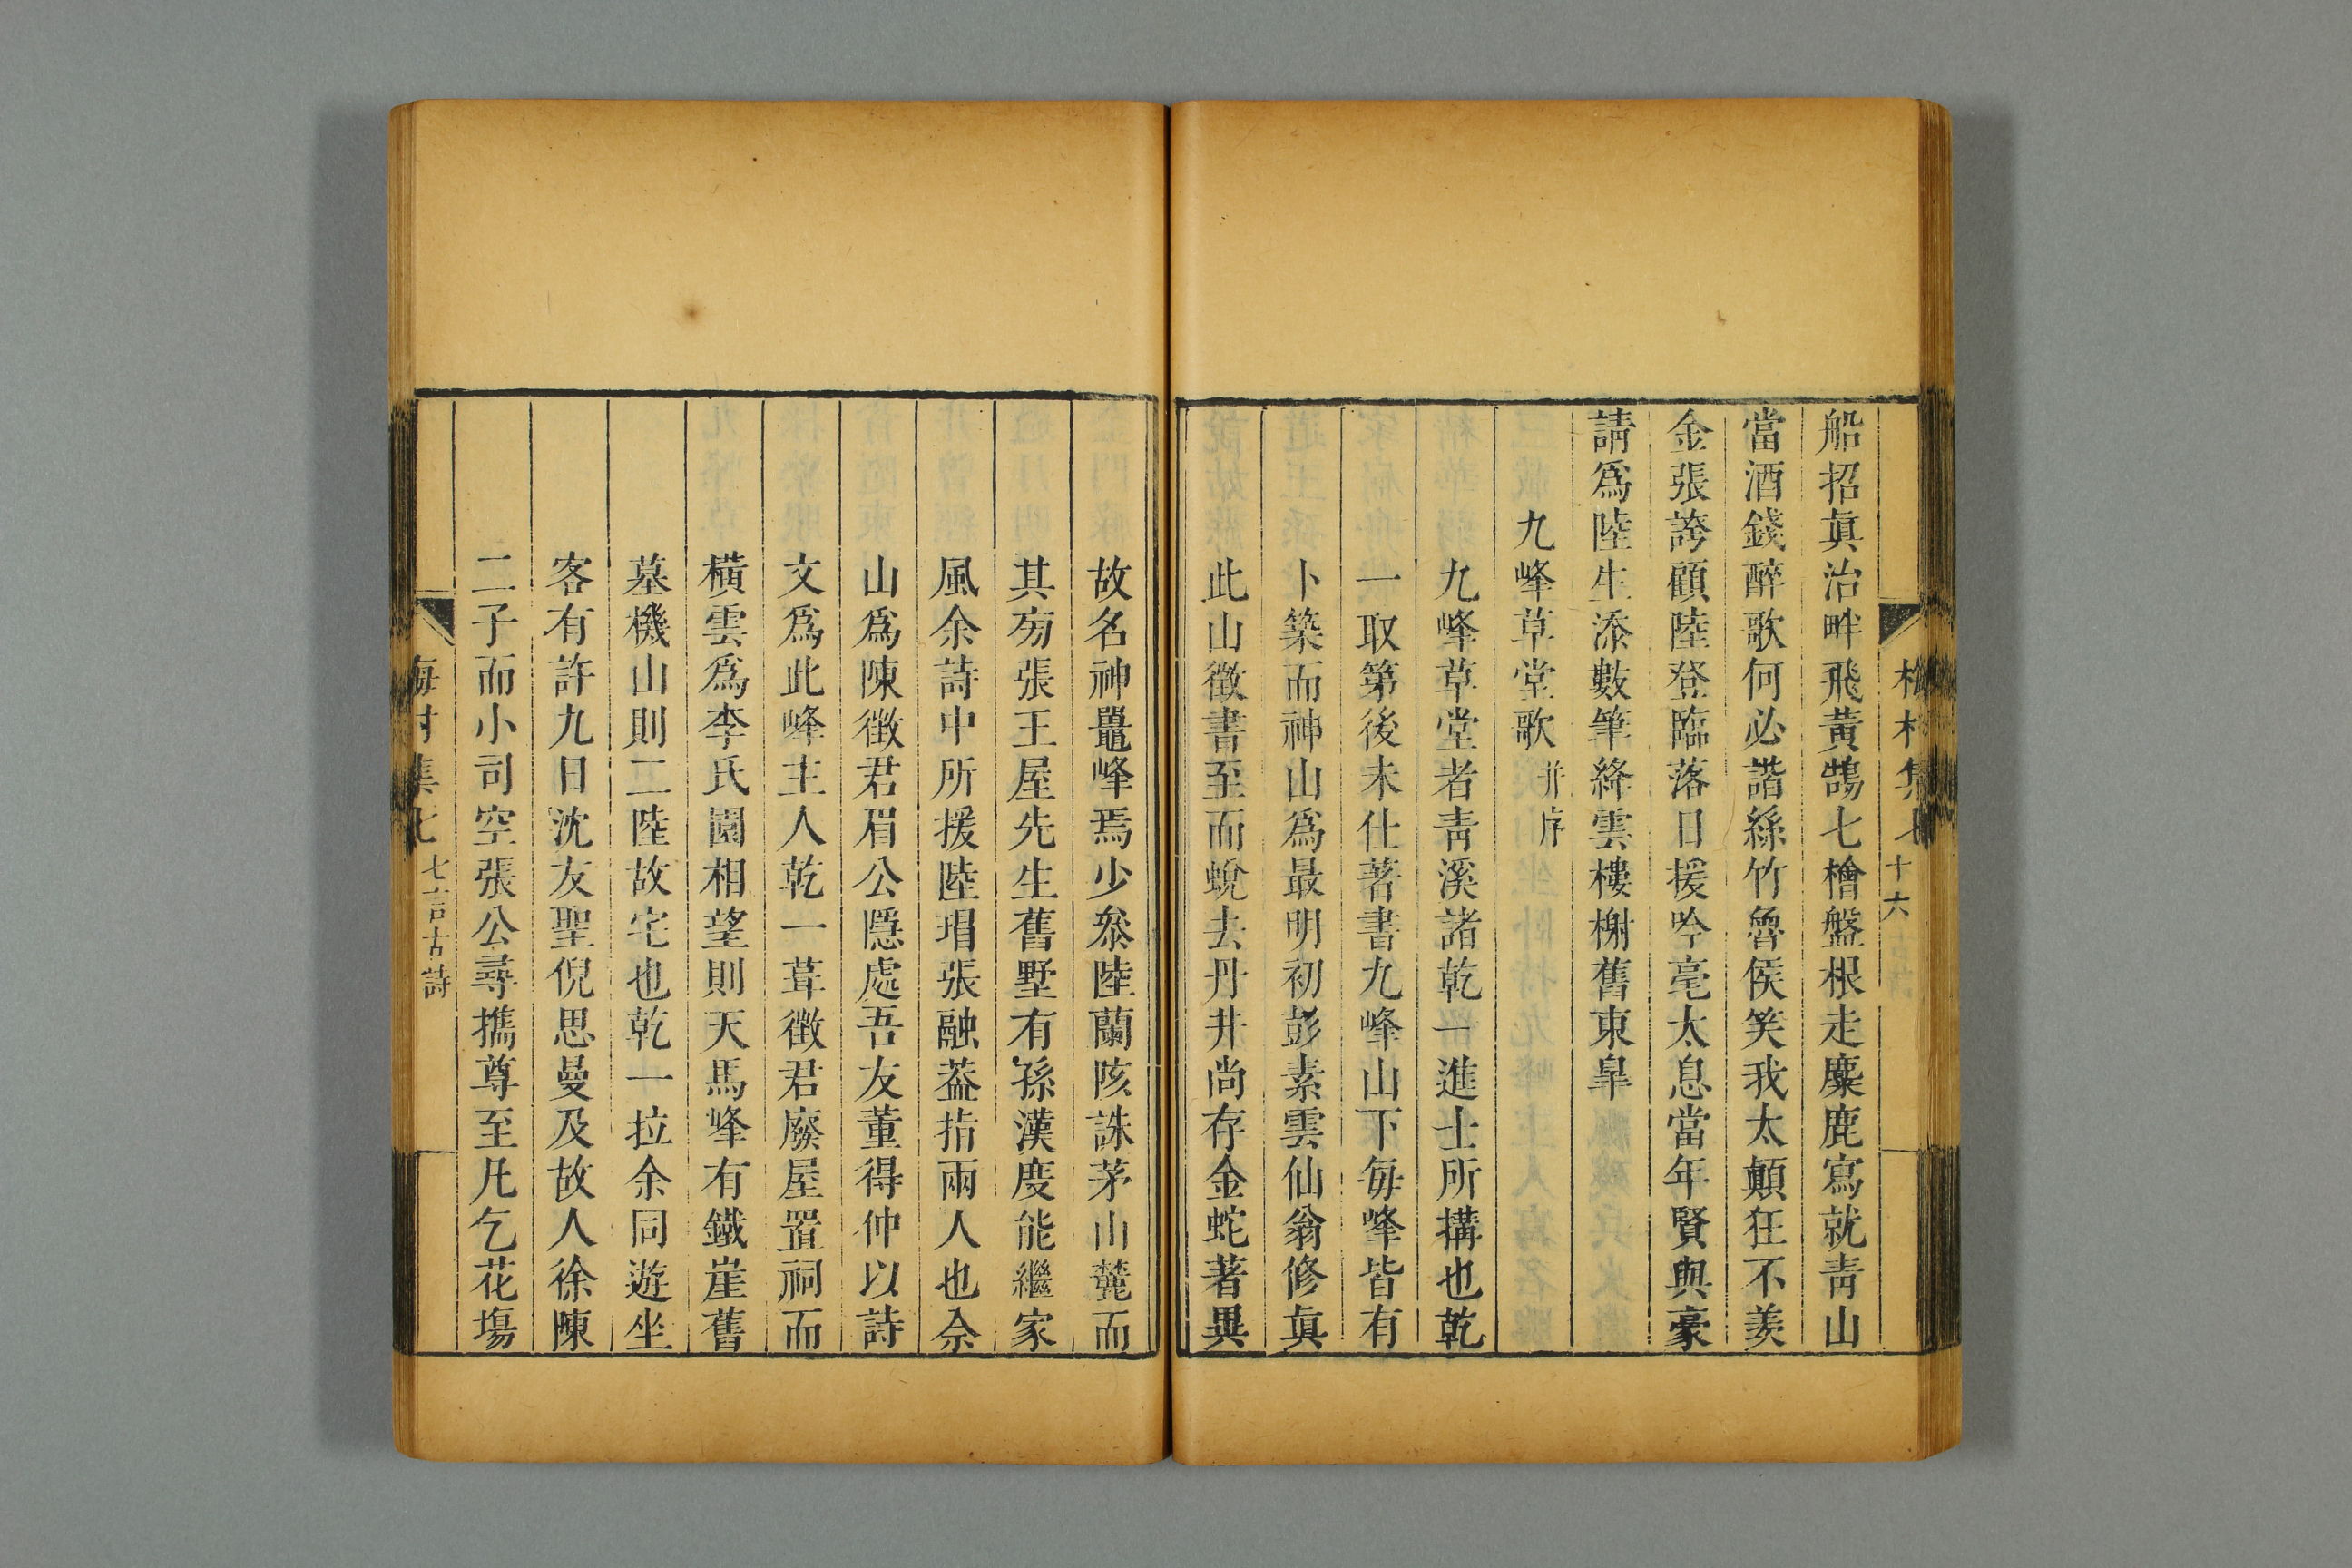 船招眞治畔飛黃鵠七檜盤根走麋鹿寫就靑山
當酒錢醉歌何必諧絲竹魯侯笑我太顚狂不羨
金張誇顧陸登臨落日援吟毫太息當年賢與豪
請爲陸生添數筆絳雲樓榭舊東皐
九峰草堂歌 并序
九峰草堂者靑溪諸乾一進士所搆也乾
一取第後未仕著書九峰山下每峰皆有
卜築而神山爲最明初彭素雲仙翁修眞
此山徵書至而蛻去丹井尙存金蛇著異
故名神鼉峰焉少叅陸蘭陔誅茅山麓而
其旁張王屋先生舊墅有孫漢度能繼家
風余詩中所援陸瑁張融葢指兩人也佘
山爲陳徵君眉公隱處吾友董得仲以詩
文爲此峰主人乾一葺徵君廢屋置祠而
橫雲爲李氏園相望則天馬峰有鐵崖舊
墓機山則二陸故宅也乾一拉余同遊坐
客有許九日沈友聖倪思曼及故人徐陳
二子而小司空張公尋攜尊至凡乞花塲
梅村集七 十六
梅村集七 七言古詩